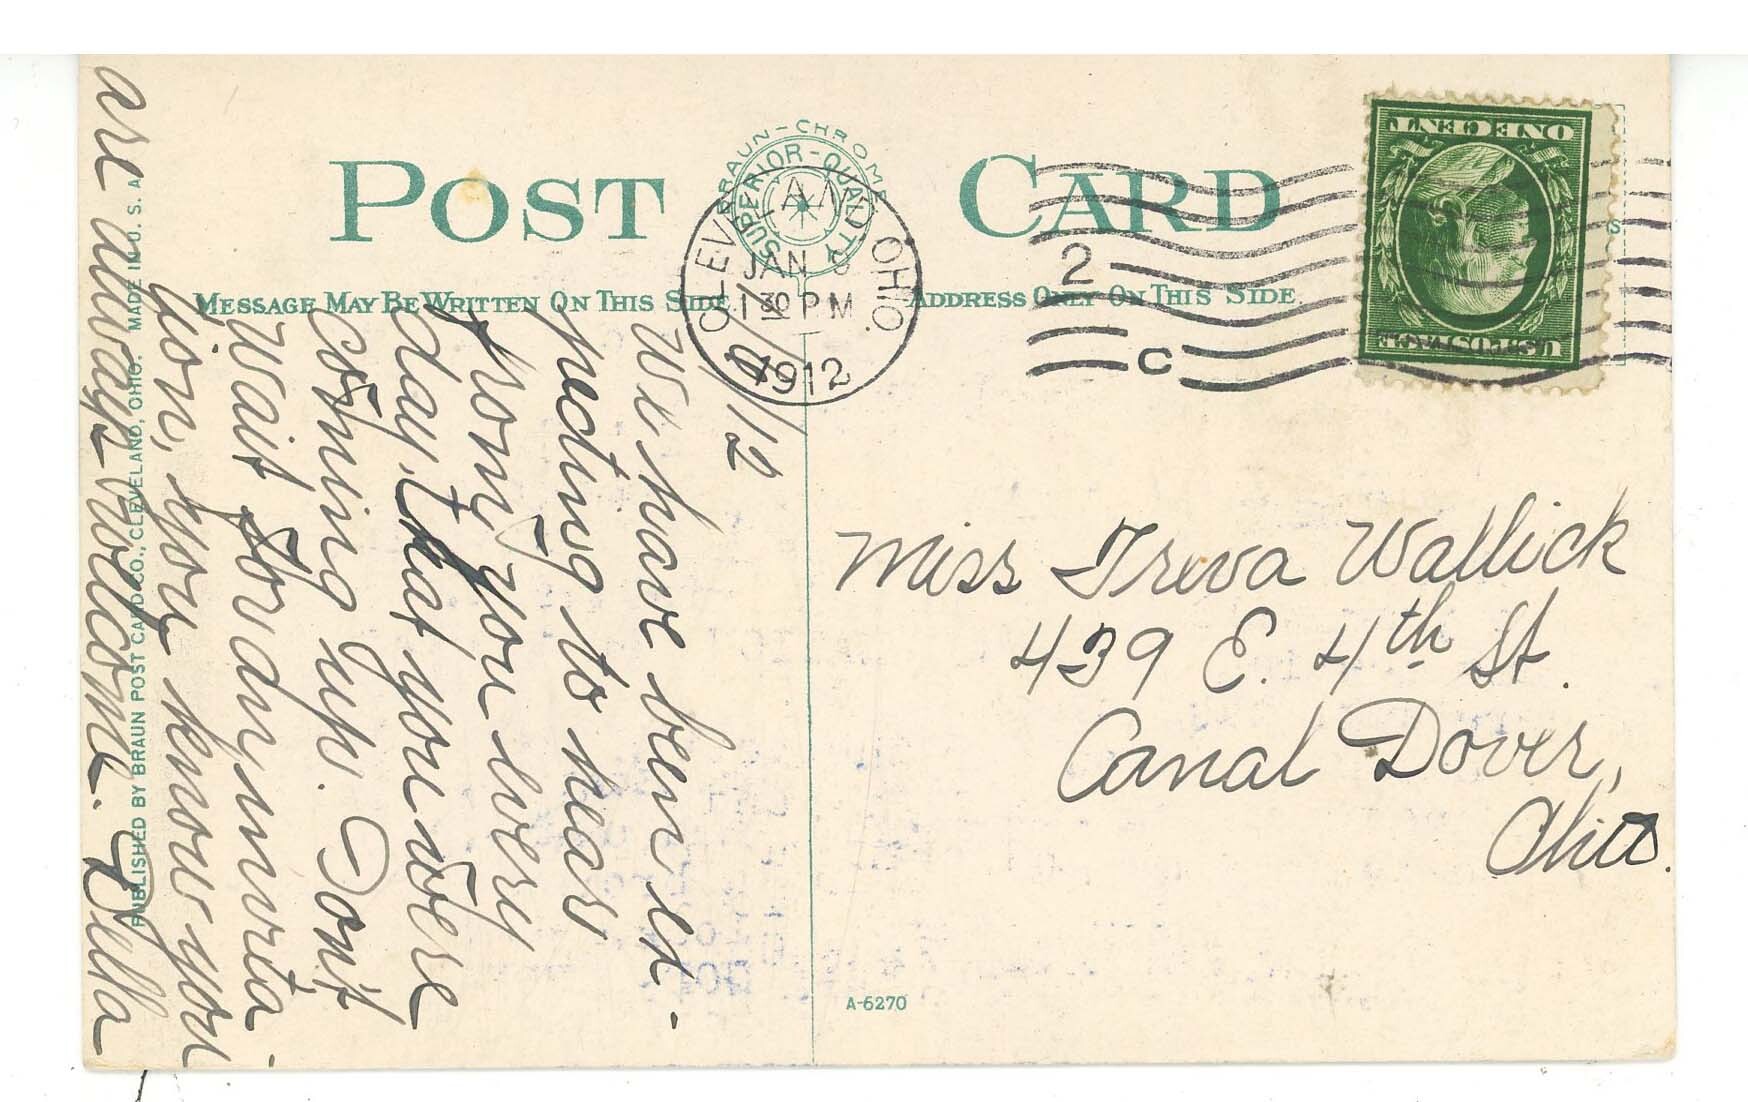 POST CARD
BRAUN-CHROME
SUPERIOR-QUALITY
MESSAGE MAY BE WRITTEN ON THIS SIDE
ADDRESS ONLY ON THIS SIDE
CLEVELAND OHIO.
JAN
1 30 PM
1912
2
C
U.S. POSTAGE
ONE CENT
/12
We have been ex-
pecting to hear
from you every
day, that you were
coming up. Don't
wait for an invita-
tion, you know you
are always welcome. Della
Miss Treva Wallick
439 E. 4th St.
Canal Dover,
Ohio.
A-6270
PUBLISHED BY BRAUN POST CARD CO., CLEVELAND, OHIO. MADE IN U. S. A.